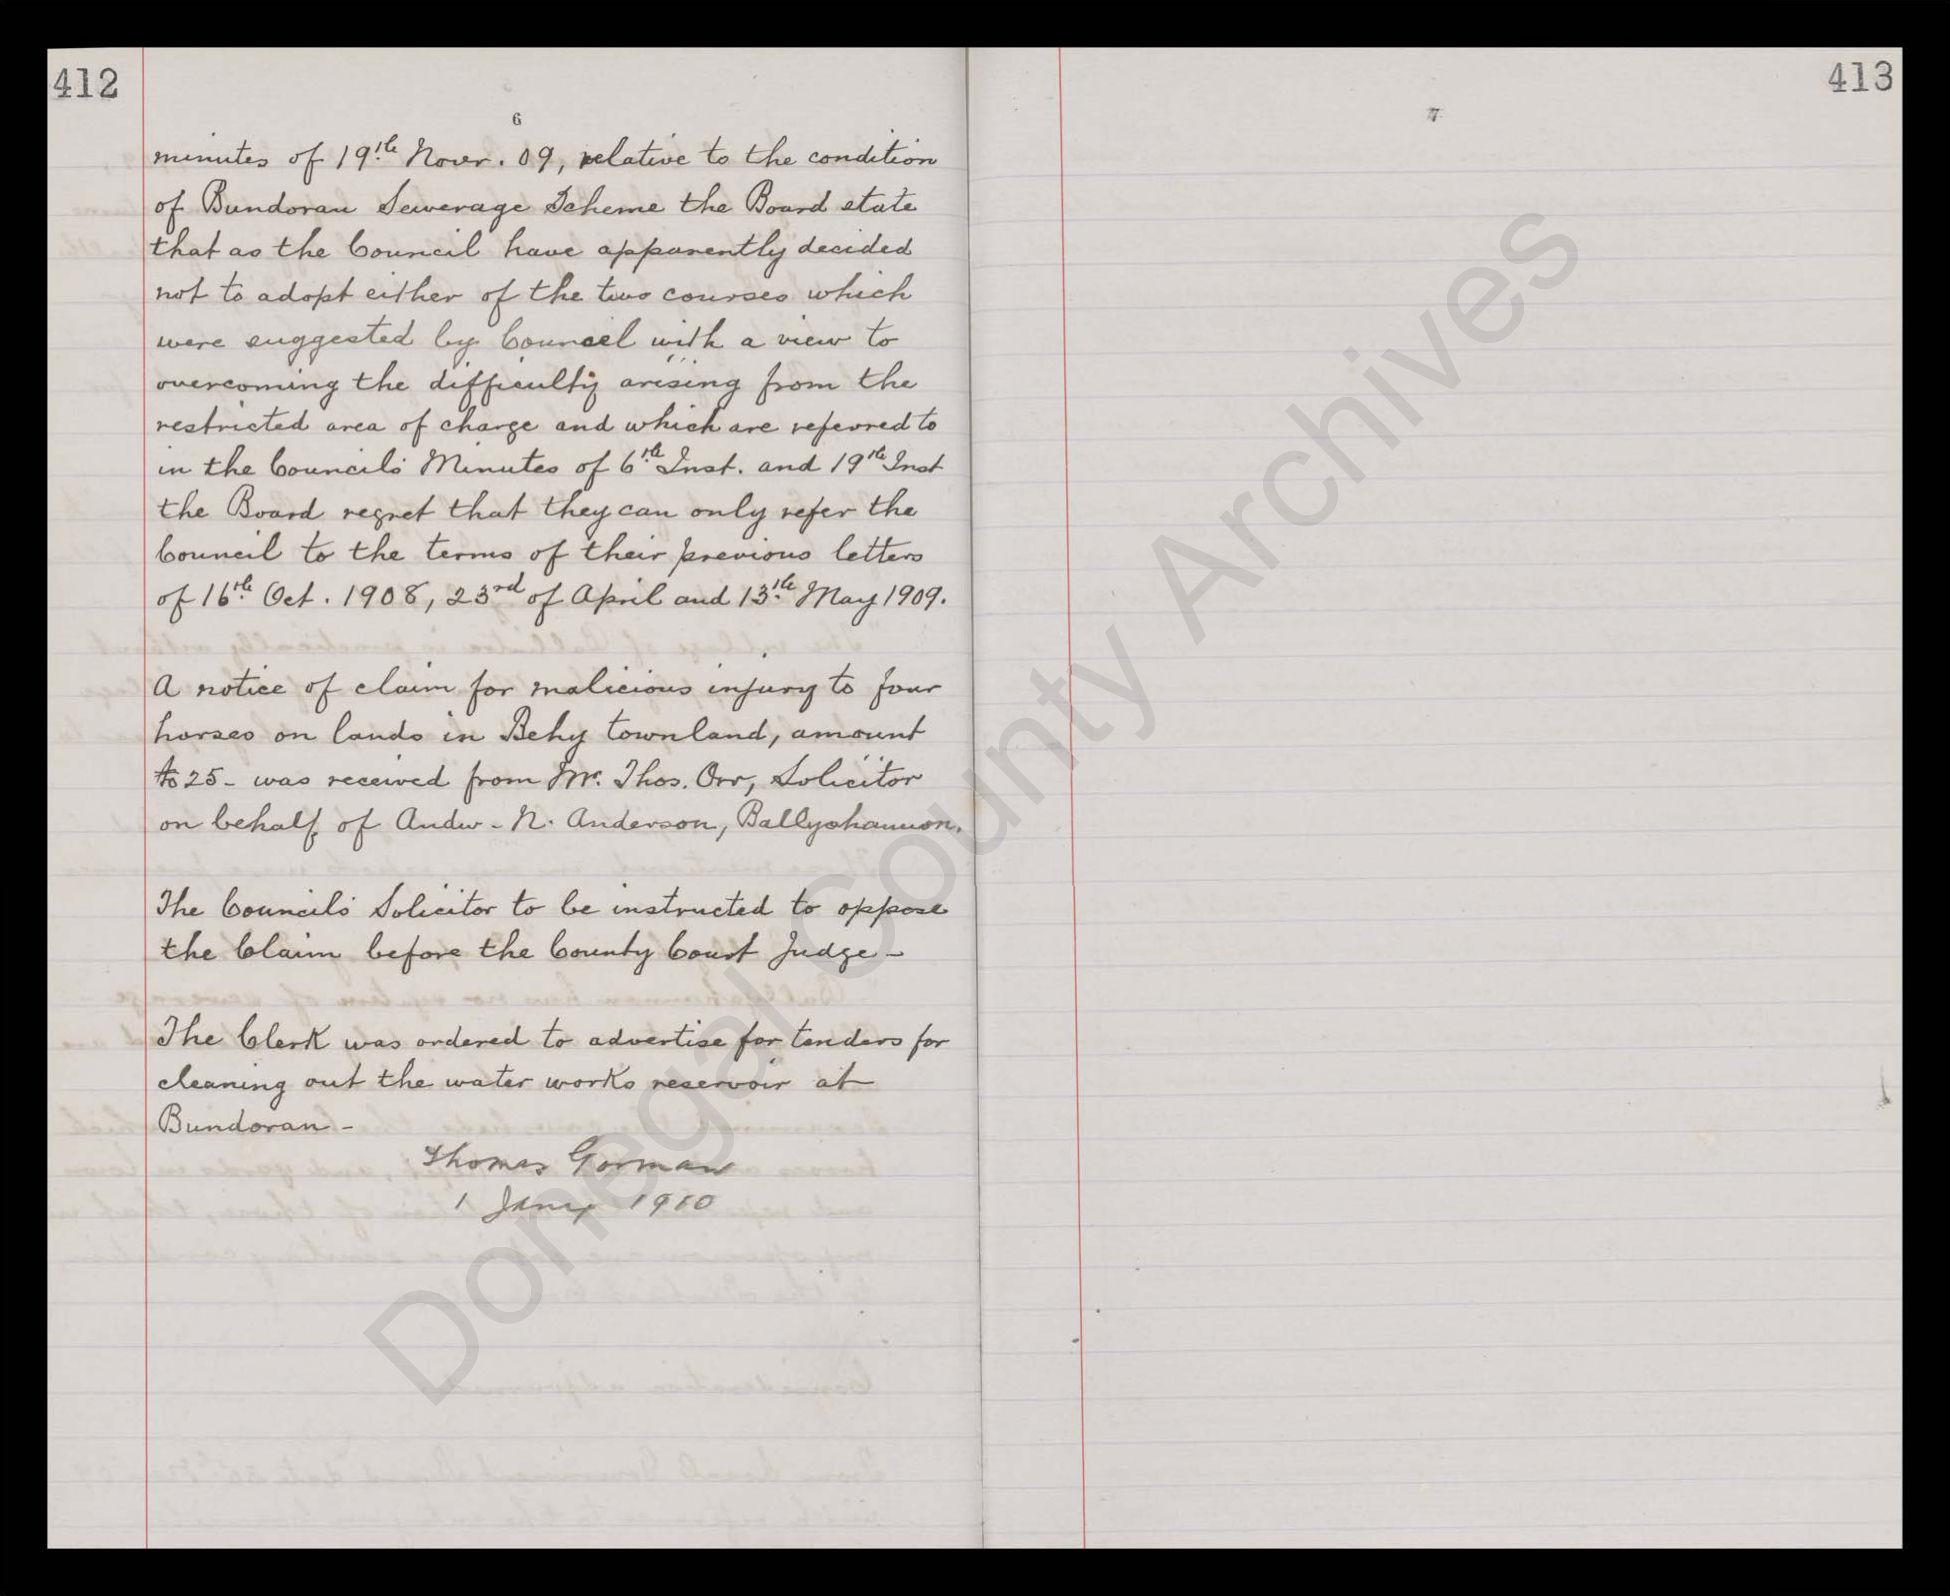 412
6
minutes of 19th Novr. 09, relative to the condition
of Bundoran Sewerage Scheme the Board state
that as the Council have apparently decided
not to adopt either of the two courses which
were suggested by Councel with a view to
overcoming the difficulty arising from the
restricted area of charge and which are referred to
in the Council's Minutes of 6th Inst. and 19th Inst
the Board regret that they can only refer the
Council to the terms of their previous letters
of 16th Oct. 1908, 23rd of April and 13th May 1909.
A notice of claim for malicious injury to four
horses on lands in Behy townland, amount
25 - was received from Mr. Thos. Orr, Solicitor
on behalf of Andw - N. Anderson, Ballyshannon.
The Council's Solicitor to be instructed to oppose
the Claim before the County Court Judge -
The Clerk was ordered to advertise for tenders for
cleaning out the water works reservoir at
Bundoran -
Thomas Gorman
1 Jany 1910
413
7
Donegal County Archives